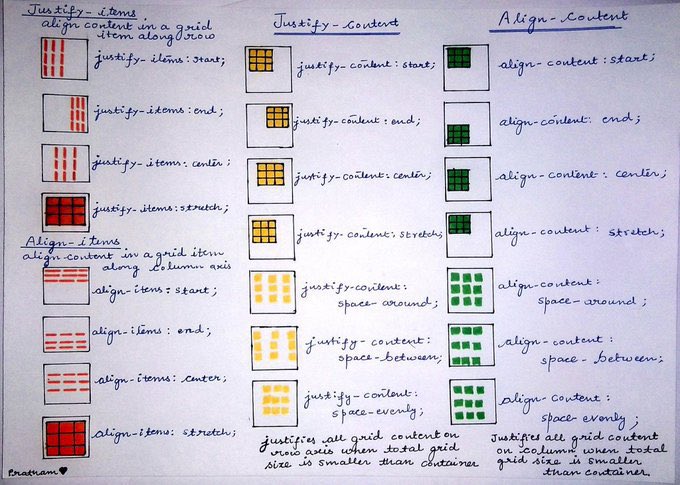 Justify-items
align content in a grid
item along row
justify-items: start;
justify-items: end;
justify-items: center;
justify-items: stretch;
Align-items
align content in a grid item
along column axis
align-items: start;
align-items: end;
align-items: center;
align-items: stretch;
Pratham
Justify-Content
justify-content: start;
justify-content: end;
justify-content: center;
justify-content: stretch;
justify-content:
space-around;
justify-content:
space-between;
justify-content:
space-evenly;
justifies all grid content on
row axis when total grid
size is smaller than container
Align-Content
align-content: start;
align-content: end;
align-content: center;
align-content: stretch;
align-content:
space-around;
align-content:
space-between;
align-content:
space-evenly;
Justifies all grid content
on column when total
grid size is smaller
than container.